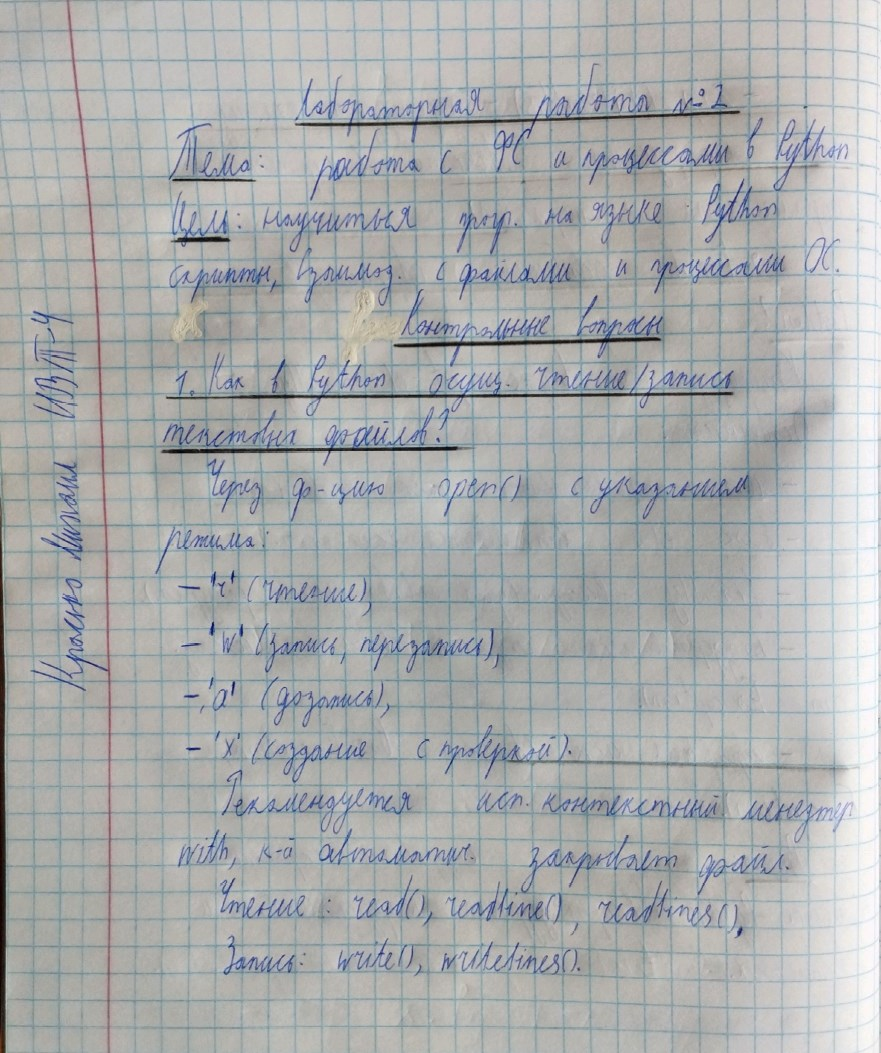 Лабораторная работа №2
Тема: работа с ФС и процессами в Python
Цель: научиться прогр. на языке Python
скрипты, взаимод. с файлами и процессами ОС.
Контрольные вопросы
1. Как в Python осущ. чтение/запись
текстовых файлов?
Через ф-цию open() с указанием
режима:
– 'r' (чтение),
– 'w' (запись, перезапись),
– 'a' (дозапись),
– 'x' (создание с проверкой).
Рекомендуется исп. контекстный менеджер
with, к-й автоматич. закрывает файл.
Чтение: read(), readline(), readlines(),
Запись: write(), writelines().
Михаил ИВТ-4